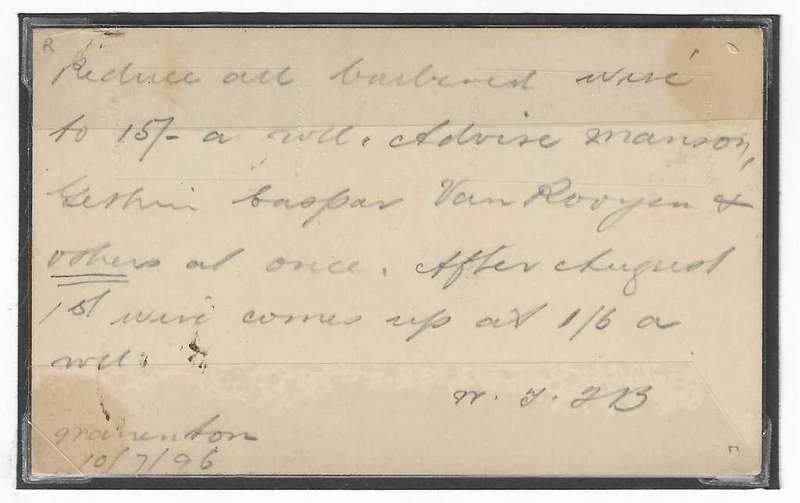 R
Reduce all barbered wire
to 15/- a roll. Advise Manson,
Gethin Caspar Van Rooyen &
others at once. After August
1st wire comes up at 1/6 a
roll.
W. J. J B
10/7/96